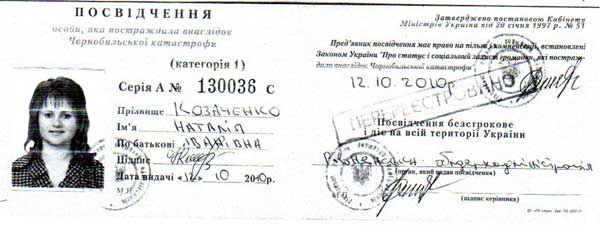 ПОСВІДЧЕННЯ
особи, яка постраждала внаслідок
Чорнобильської катастрофи
(категорія 1)
Серія А № 130036 С
Прізвище КОЗАЧЕНКО
Ім'я НАТАЛІЯ
По батькові ІВАНІВНА
Підпис
Дата видачі «12» 10 20 0р.
М.П.
Затверджено постановою Кабінету
Міністрів України від 20 січня 1997 р. № 51
Пред'явник посвідчення має право на пільги і компенсації, встановлені
Законом України "Про статус і соціальний захист громадян, які постраж-
дали внаслідок Чорнобильської катастрофи".
12.10.2010р
ПЕРЕРЕЄСТРОВАНО
Посвідчення безстрокове
і діє на всій території України
облдержадміністрація
(орган, який видав посвідчення)
(підпис керівника)